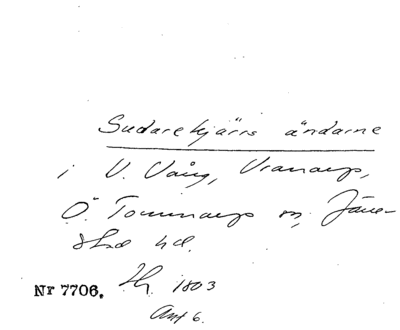 Sudarekjärrs ändarne
i V. Vång, Vranarp,
Ö. Tommarps sn, Järre-
stad hd.
Nr 7706. 1803
Akt 6.